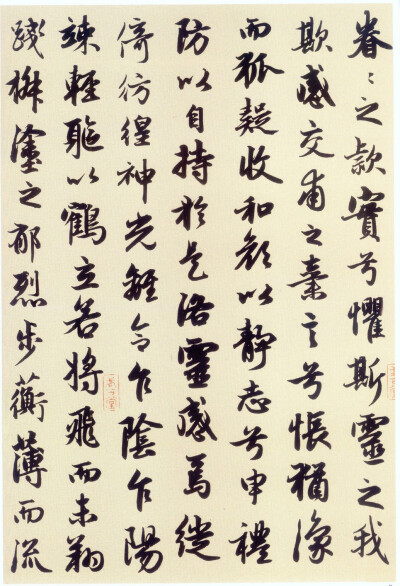 眷〻之款實兮懼斯靈之我
欺感交甫之棄言兮悵猶豫
而狐疑收和顏以靜志兮申禮
防以自持於是洛靈感焉徙
倚彷徨神光離合乍陰乍陽
竦輕軀以鶴立若將飛而未翔
踐椒塗之郁烈步蘅薄而流